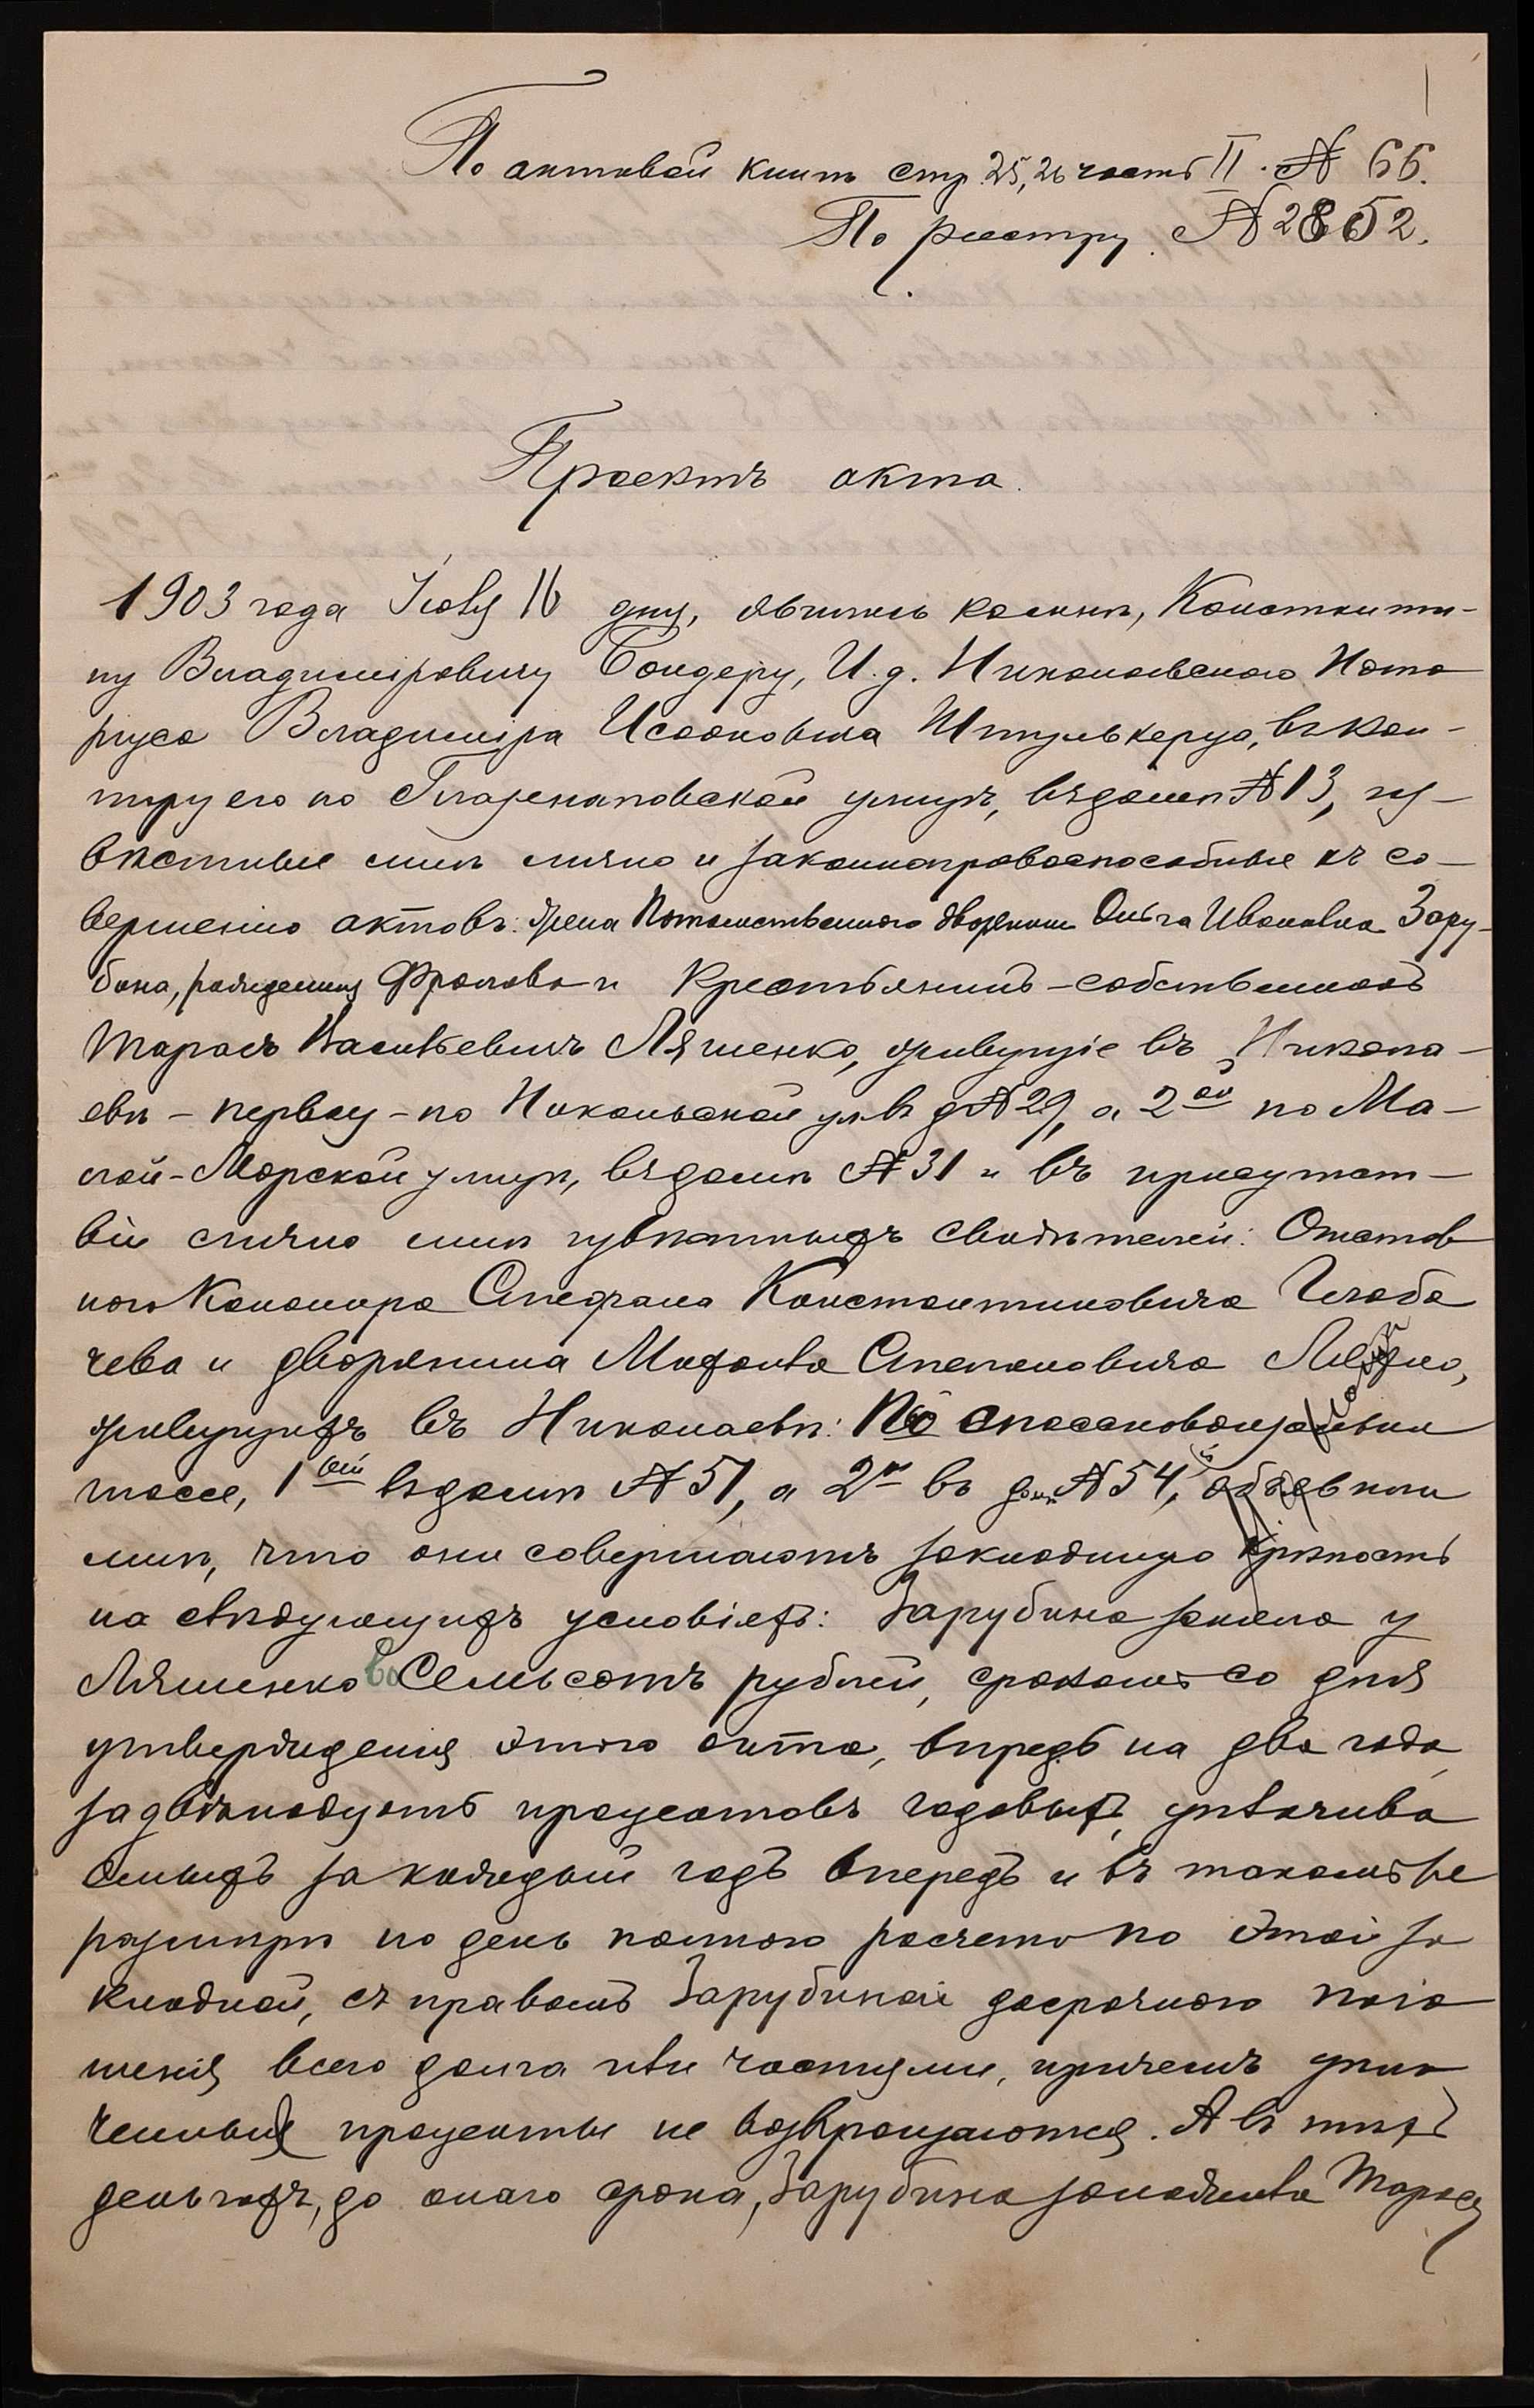 По актовой книгѣ стр. 25, 26 часть II. № 66.
По реестру № 2852.
Проектъ акта.
1903 года Іюля 16 дня, явились ко мнѣ, Константи-
ну Владиміровичу Бондеру, И. д. Николаевскаго Нота
ріуса Владиміра Исааковича Штулькерца, въ кон-
тору его по Глазенаповской улицѣ, въ домѣ № 13, из-
вѣстные мнѣ лично и законноправоспособные къ со-
вершенію актовъ: жена Потомственнаго дворянина Ольга Ивановна Зару-
бина, рожденная Фролова и Крестьянинъ-собственникъ
Тарасъ Васильевичъ Ляшенко, живущіе въ Никола-
евѣ - первая - по Никольской ул. въ д. № 29, а 2ой по Ма-
лой-Морской улицѣ, въ домѣ № 31 и въ присутст-
віи лично мнѣ извѣстныхъ свидѣтелей: Отстав
ного Канонира Стефана Константиновича
чева и дворянина Степановича
живущихъ въ Николаевѣ: По
шоссе, 1ый въ домѣ № 51, а 2й въ домѣ № 54, объявили
мнѣ, что они совершаютъ закладную крѣпость
на слѣдующихъ условіяхъ: Зарубина заняла у
Ляшенко Семьсотъ рублей, срокомъ со дня
утвержденія этого акта, впредь на два года
за двѣнадцать процентовъ годовыхъ, уплачива
емыхъ за каждый годъ впередъ и въ такомъ же
размѣрѣ по день полнаго расчета по этой за
кладной, съ правомъ Зарубиной досрочнаго пога
шенія всего долга или частями, причемъ упла
ченные проценты не возвращаются. А въ тѣхъ
деньгахъ, до онаго срока, Зарубина заложила Тарасу